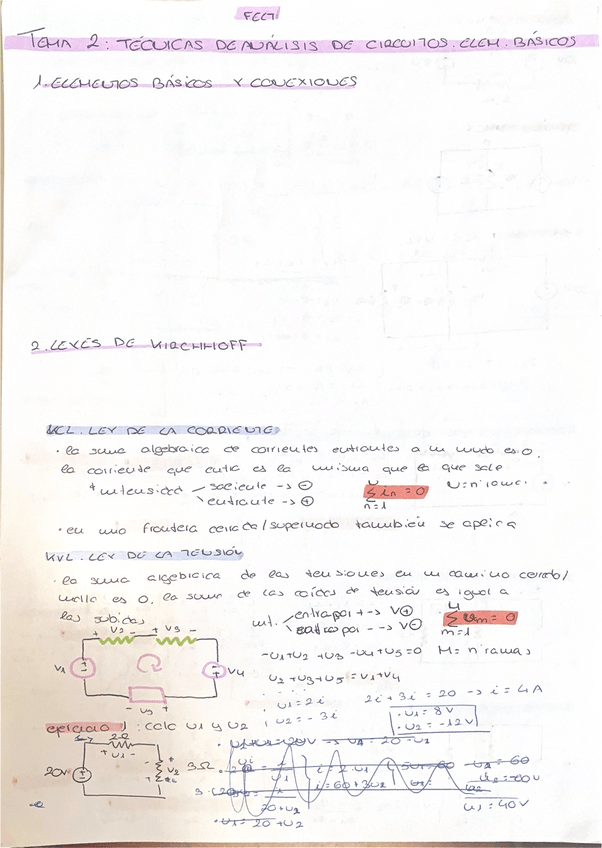 FECT
TEMA 2: TÉCNICAS DE ANÁLISIS DE CIRCUITOS. ELEM. BÁSICOS
1. ELEMENTOS BÁSICOS Y CONEXIONES
2. LEYES DE KIRCHHOFF
KCL. LEY DE LA CORRIENTE
· la suma algebraica de corrientes entrantes a un nudo es 0.
la corriente que entra es la misma que la que sale
* intensidad saliente -> ⊖
entrante -> ⊕
N
Σ in = 0
n=1
· en una frontera cerrada/supernodo también se aplica
KVL. LEY DE LA TENSIÓN
· la suma algebraica de las tensiones en un camino cerrado/
malla es 0, la suma de las caídas de tensión es igual a
las subidas
entra por + -> V⊕
por - -> V⊖
M
Σ vm = 0
m=1
+ V2 - + V3 -
V1
V4
- V5 +
-V1+V2+V3-V4+V5=0 M= nº ramas
V2+V3+V5=V1+V4
V1=2i
V2=-3i
2i+3i=20 -> i=4A
· V1=8V
· V2=-12V
ejercicio 1: calc V1 y V2
2Ω
+ V1 -
20V
V2
3Ω
20+V2
· V1=20+V2
V1=40V